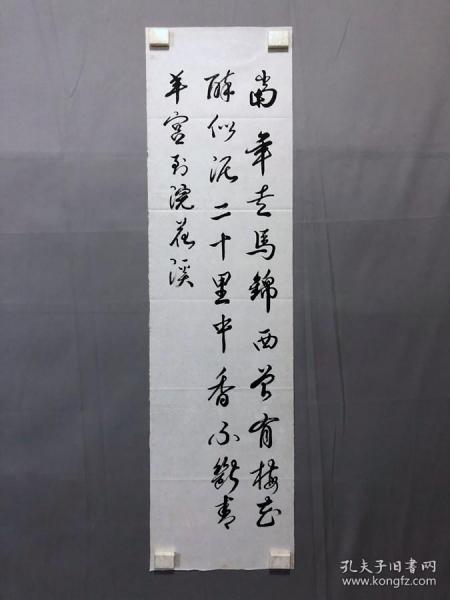 當年走馬錦西曾有梅花
醉似泥二十里中香不斷青
羊宮到浣花溪
孔夫子旧书网
www.kongfz.com